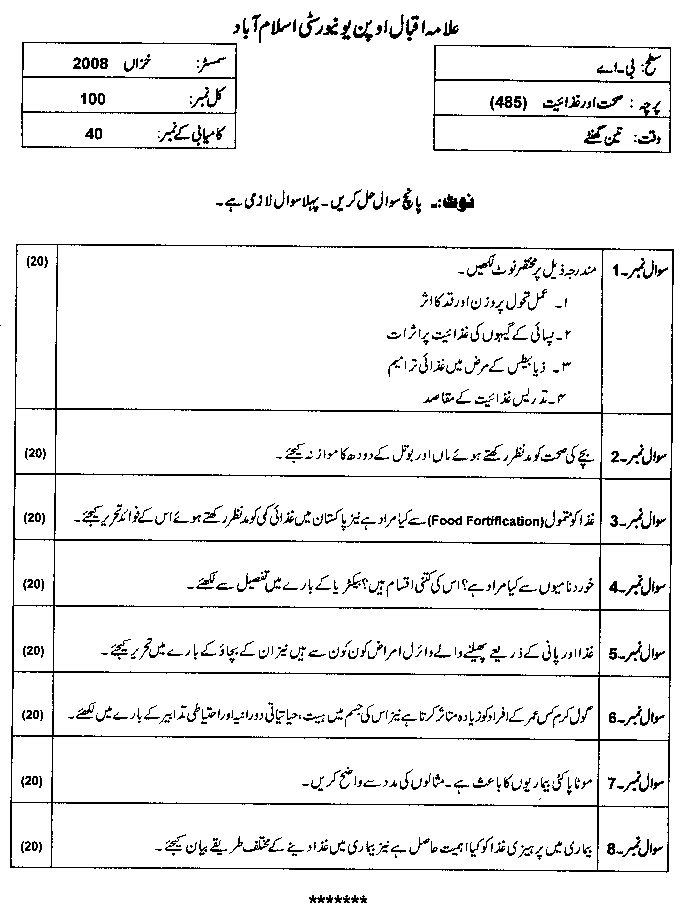 علامہ اقبال اوپن یونیورسٹی اسلام آباد
سطح: بی-اے
پرچہ : صحت اور غذائیت (485)
وقت: تین گھنٹے
سمسٹر: خزاں 2008
کل نمبر: 100
کامیابی کے نمبر: 40
نوٹ:۔ پانچ سوال حل کریں۔ پہلا سوال لازمی ہے۔
سوال نمبر۔1 مندرجہ ذیل پر مختصر نوٹ لکھیں۔ (20)
۱۔ عمل تحول پر وزن اور قد کا اثر
۲۔ پسائی کے گیہوں کی غذائیت پر اثرات
۳۔ ذیابیطس کے مرض میں غذائی ترامیم
۴۔ تدریس غذائیت کے مقاصد
سوال نمبر۔2 بچے کی صحت کو مدنظر رکھتے ہوئے ماں اور بوتل کے دودھ کا موازنہ کیجئے۔ (20)
سوال نمبر۔3 غذا کو متمول (Food Fortification) سے کیا مراد ہے نیز پاکستان میں غذائی کمی کو مدنظر رکھتے ہوئے اس کے فوائد تحریر کیجئے۔ (20)
سوال نمبر۔4 خوردنامیوں سے کیا مراد ہے؟ اس کی کتنی اقسام ہیں؟ بیکٹریا کے بارے میں تفصیل سے لکھئے۔ (20)
سوال نمبر۔5 غذا اور پانی کے ذریعے پھیلنے والے وائرل امراض کون کون سے ہیں نیز ان کے بچاؤ کے بارے میں تحریر کیجئے۔ (20)
سوال نمبر۔6 گول کرم کس عمر کے افراد کو زیادہ متاثر کرتا ہے نیز اس کی جسم میں ہیت، حیاتیاتی دورانیہ اور احتیاطی تدابیر کے بارے میں لکھئے۔ (20)
سوال نمبر۔7 موٹاپا کئی بیماریوں کا باعث ہے۔ مثالوں کی مدد سے واضح کریں۔ (20)
سوال نمبر۔8 بیماری میں پرہیزی غذا کو کیا اہمیت حاصل ہے نیز بیماری میں غذا دینے کے مختلف طریقے بیان کیجئے۔ (20)
*******